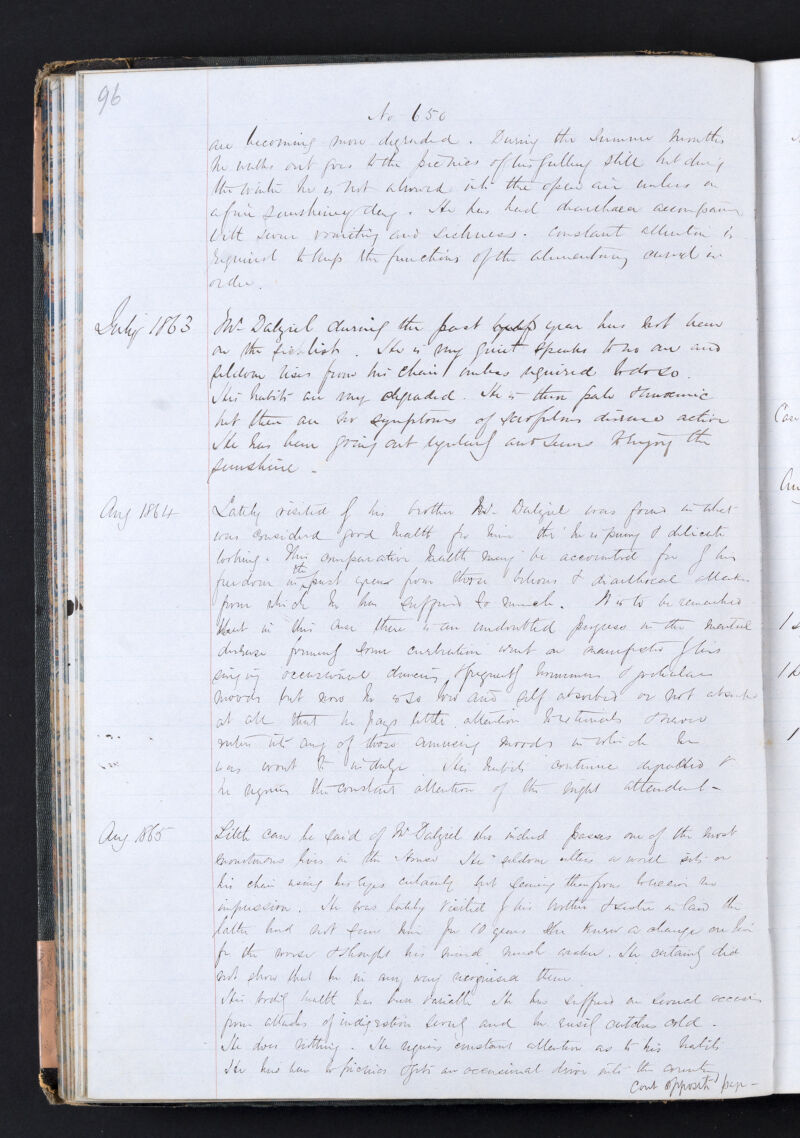 96
No 650
are becoming more degraded. During the summer months
he walks out goes to the picnics of his gallery still but during
the winter he is not allowed into the open air unless on
a fine sunshiney day. He has had diarrhoea accompan
with severe vomiting and sickness. Constant attention is
required to keep the functions of the alimentary canal in
order.
July 1863
Mr Dalziel during the past half year has not been
on the sick list. He is very quiet speaks to no one and
seldom rises from his chair unless required to do so.
His habits are very degraded. He is thin pale & anaemic
but there are no symptoms of scrofulous disease active
He has been going out regularly and seems to enjoy the
sunshine.
Aug 1864
Lately visited by his brother Mr Dalziel was found in what
was considered good health for him tho' he is puny & delicate
looking. This comparative health may be accounted for by his
freedom in the past year from those bilious & diarrhoeal attacks
from which he has suffered so much. It is to be remarked
that in this case there is an undoubted progress in the mental
disease formerly some was manifested by his
singing occasional dancing & frequently humorous &
moods but now he is so low and self absorbed or not absorbed
at all that he pays little attention to externals & never
enters into any of those amusing moods in which he
was wont to indulge. His habits continue degraded &
he requires the constant attention of the night attendant -
Aug 1865
Little can be said of Mr Dalziel who indeed passes one of the most
monotonous lives in the House. He seldom utters a word sits on
his chair using his eyes certainly but seeing therefrom to receive no
impression. He was lately visited by his brother & sister in law the
latter had not seen him for 10 years She knew a change on him
for the worse & thought his mind much weaker. He certainly did
not show that he in any way recognised them.
His bodily health has been variable He has suffered on several occasions
from attacks of indigestion and he easily catches cold.
He does nothing. He requires constant attention as to his habits
He has been to picnics & gets an occasional drive into the country
Cont opposite page -